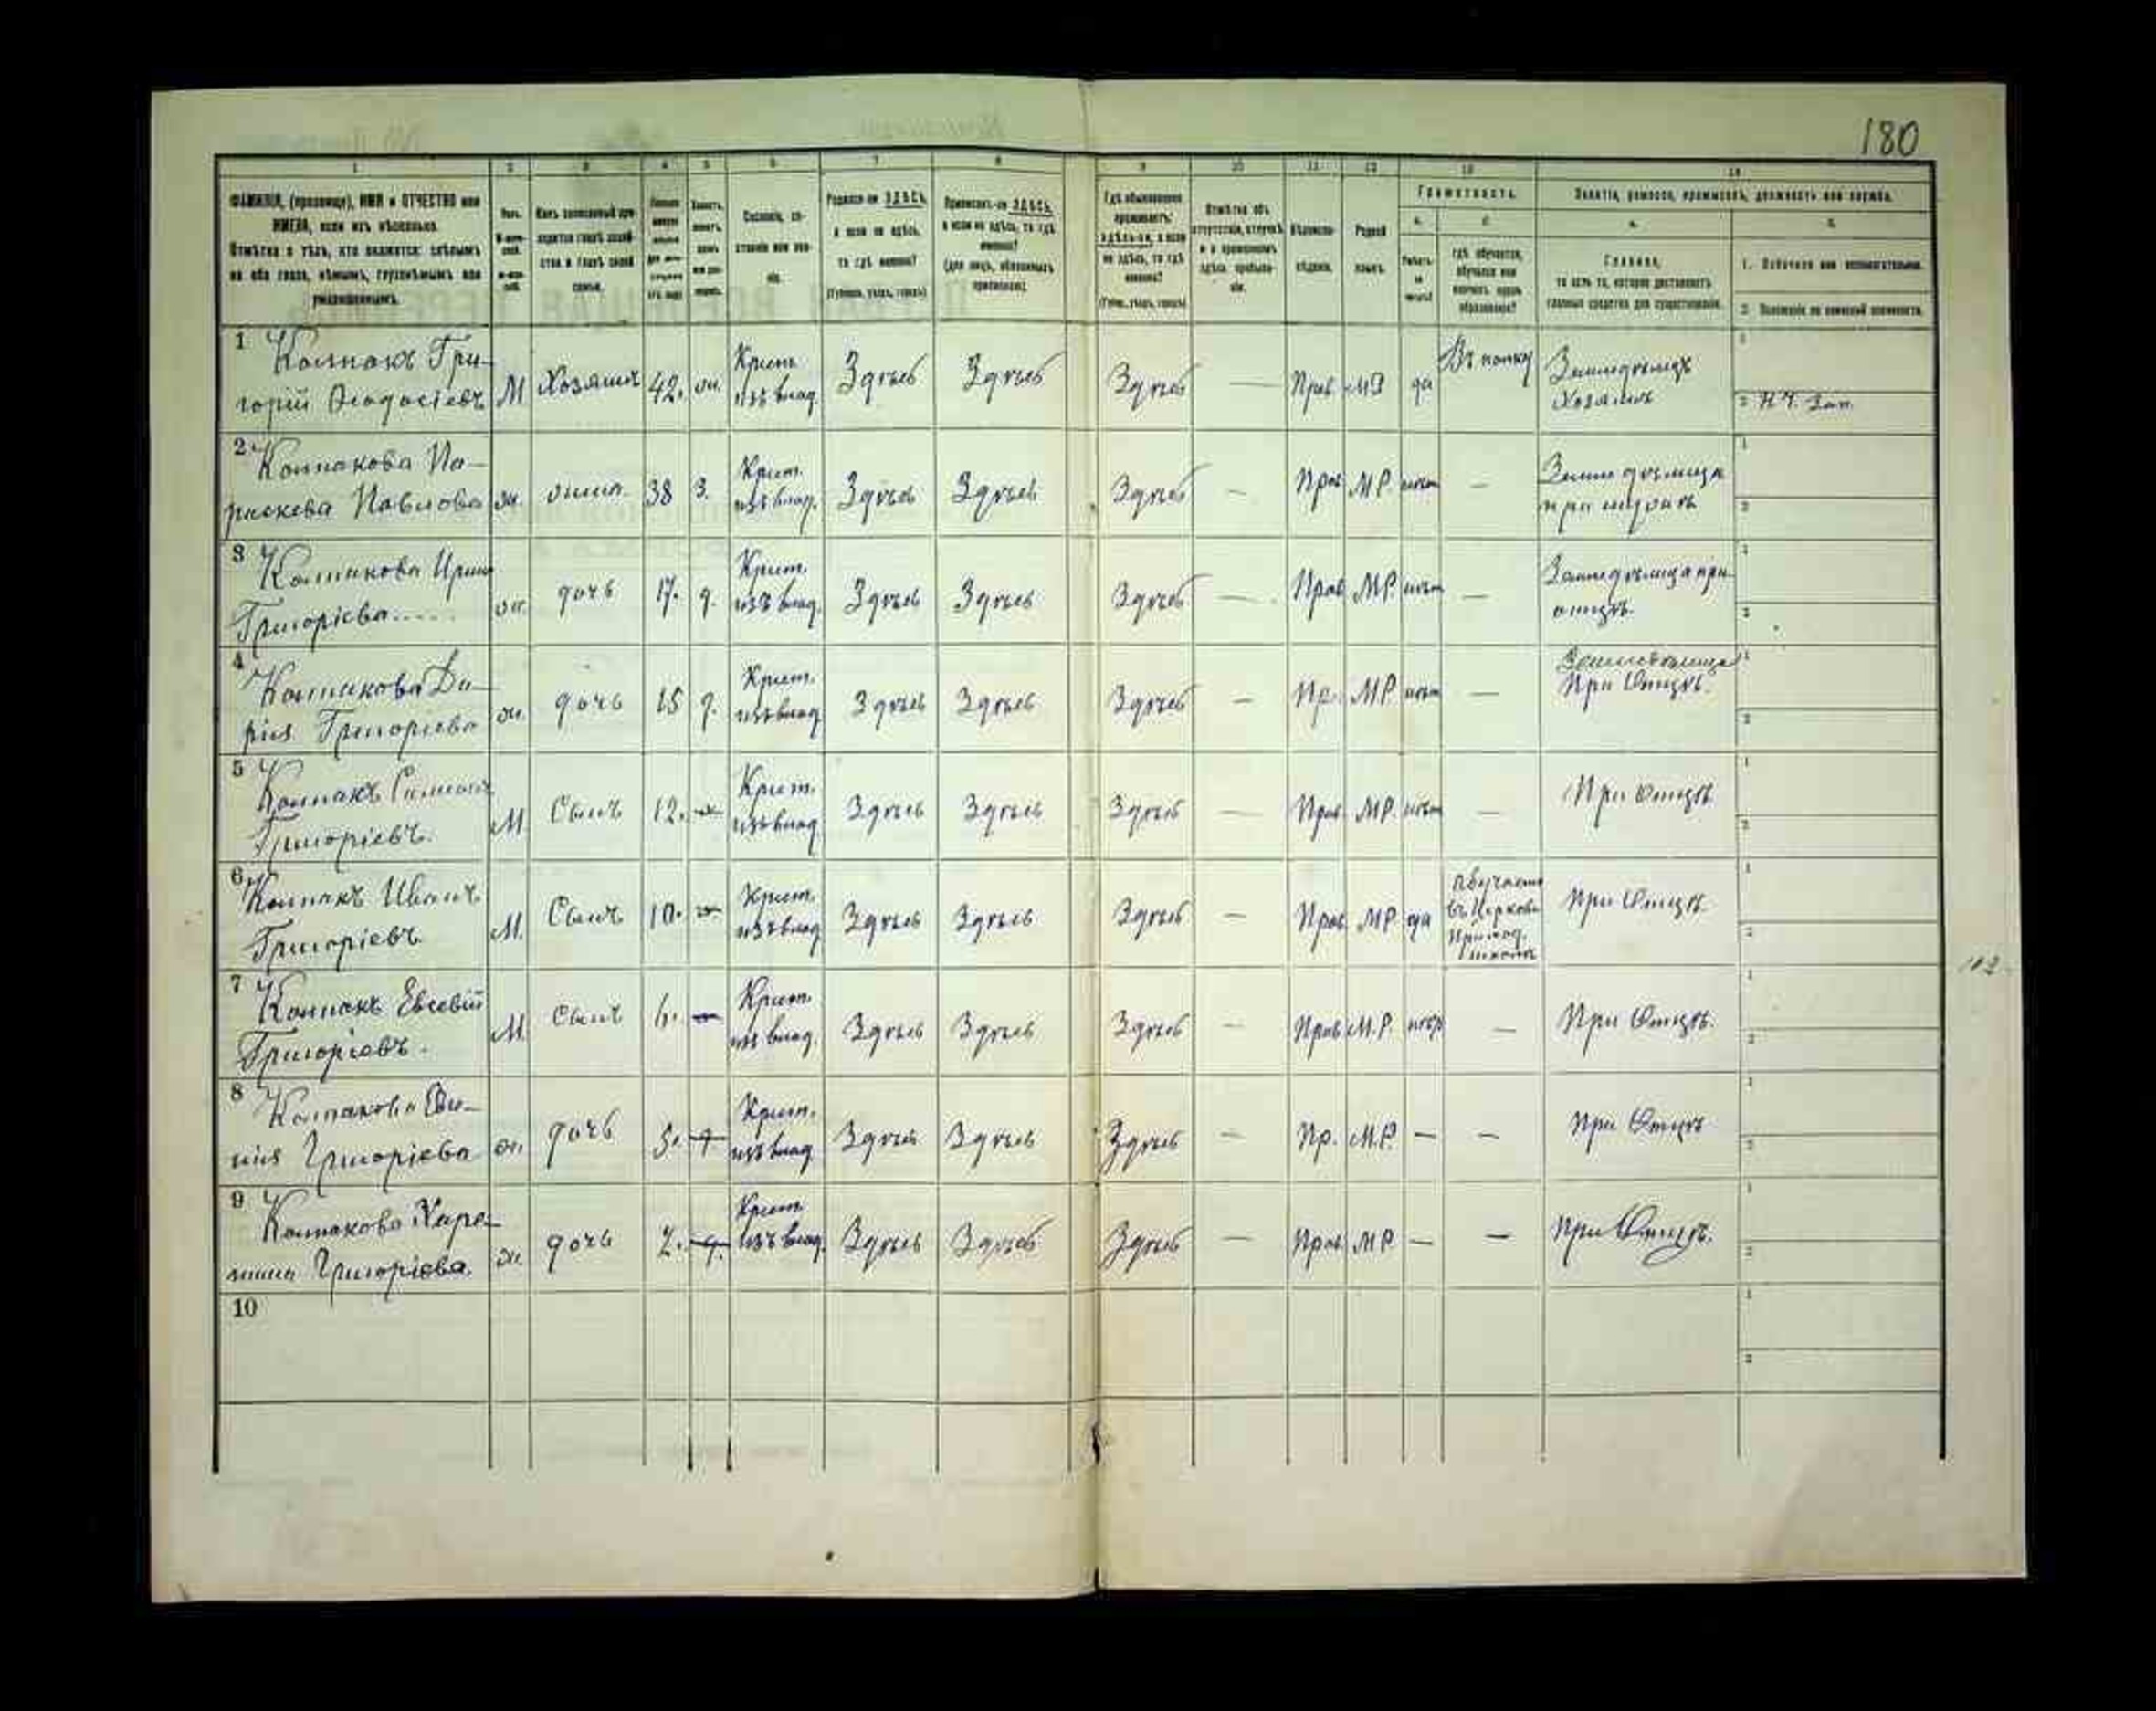 180
1 2 3 4 5 6 7 8 9 10 11 12 13 14
ФАМИЛІЯ, (прозвище), ИМЯ и ОТЧЕСТВО или
ИМЕНА, если ихъ нѣсколько.
Отмѣтка о тѣхъ, кто окажется: слѣпымъ
на оба глаза, нѣмымъ, глухонѣмымъ или
умалишеннымъ.
Полъ.
Какъ записанный при-
ходится главѣ хозяй-
ства и главѣ своей
семьи.
Сословіе, со-
стояніе или зва-
ніе.
Родился-ли ЗДѢСЬ,
а если не здѣсь,
то гдѣ именно?
(Губернія, уѣздъ, городъ)
Приписанъ-ли ЗДѢСЬ,
а если не здѣсь, то гдѣ
именно?
(для лицъ, обязанныхъ
припискою)
Гдѣ обыкновенно
проживаетъ:
здѣсь-ли, а если
не здѣсь, то гдѣ
именно?
(Губ., уѣздъ, городъ)
Отмѣтка объ
отсутствіи, отлучкѣ
и о временномъ
здѣсь пребыва-
ніи.
Вѣроиспо-
вѣданіе.
Родной
языкъ.
Грамотность.
а.
Умѣетъ-
ли
читать?
б.
гдѣ обучается,
обучался или
кончилъ курсъ
образованія?
Занятіе, ремесло, промыселъ, должность или служба.
а.
Главное,
то есть то, которое доставляетъ
главныя средства для существованія.
б.
1. Побочное или вспомогательное.
2. Положеніе по воинской повинности.
1 Колпакъ Гри-
горій Ѳеодосіевъ М Хозяинъ 42. жн. Крест. изъ влад. Здѣсь Здѣсь Здѣсь — Прав МР да Въ полку Земледѣлецъ Хозяинъ
2 Колпакова Па-
раскева Павлова ж. жена 38 з. Крест. изъ влад. Здѣсь Здѣсь Здѣсь — Прав МР. нѣтъ — Земледѣлица при мужѣ
3 Колпакова Ирина
Григоріева..... ж. дочь 17. д. Крест. изъ влад. Здѣсь Здѣсь Здѣсь — Прав МР. нѣтъ — Земледѣлица при отцѣ.
4 Колпакова Да-
рія Григоріева ж. дочь 15 д. Крест. изъ влад. Здѣсь Здѣсь Здѣсь — Пр. МР. нѣтъ — При Отцѣ.
5 Колпакъ
Григоріевъ. М Сынъ 12. Крест. изъ влад. Здѣсь Здѣсь Здѣсь — Прав. МР. нѣтъ — При Отцѣ
6 Колпакъ Иванъ
Григоріевъ М. Сынъ 10. Крест. изъ влад. Здѣсь Здѣсь Здѣсь — Прав МР да Обучает. въ Церковн. Приход. школѣ При Отцѣ
7 Колпакъ Евсевій
Григоріевъ. М. Сынъ Крест. изъ влад. Здѣсь Здѣсь Здѣсь — Прав М.Р. — При Отцѣ.
8 Колпакова
Григоріева ж. дочь Крест. изъ влад. Здѣсь Здѣсь Здѣсь — Пр. М.Р. — — При Отцѣ
9 Колпакова
Григоріева. ж. дочь 2. д. Крест. изъ влад. Здѣсь Здѣсь Здѣсь — Прав МР — — При Отцѣ.
10